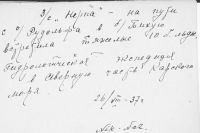 Э/с "Нерпа" - на пути
с о/ Рудольфа в б/ Тихую
встретила тяжелые 10 б. льды.
Гидрологической экспедиция
в северную часть Карского
моря
26/VIII-37г